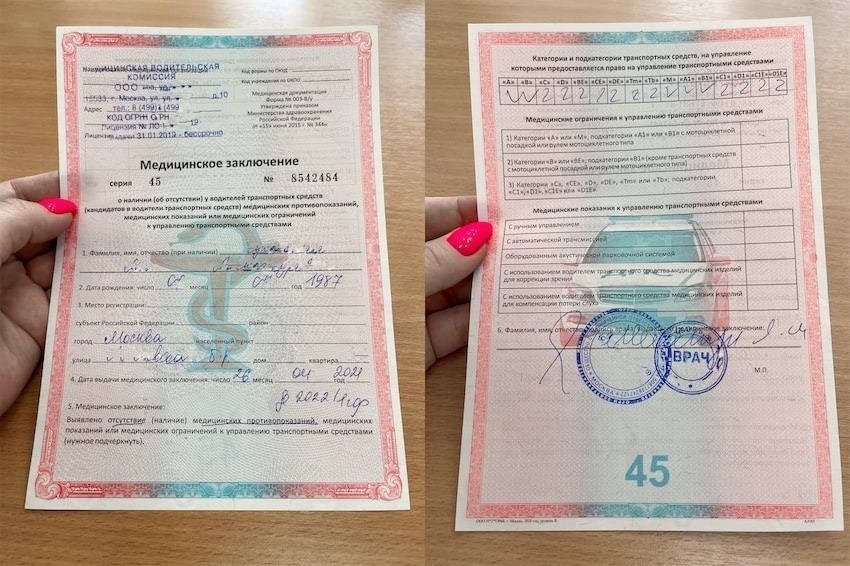 МЕДИЦИНСКАЯ ВОДИТЕЛЬСКАЯ
КОМИССИЯ
ООО
г. Москва, ул. д.10
Адрес тел.: 8 (499)
КОД ОГРН
Лицензия № ЛО
Лицензия выдачи 31.01.2019 - Бессрочно
Код формы по ОКУД
Код учреждения по ОКПО
Медицинская документация
Форма № 003-В/у
Утверждена приказом
Министерства здравоохранения
Российской Федерации
от «15» июня 2015 г. № 344н
Медицинское заключение
серия 45 № 8542484
о наличии (об отсутствии) у водителей транспортных средств
(кандидатов в водители транспортных средств) медицинских противопоказаний,
медицинских показаний или медицинских ограничений
к управлению транспортными средствами
1. Фамилия, имя, отчество (при наличии)
2. Дата рождения: число месяц год 1987
3. Место регистрации:
субъект Российской Федерации район
город Москва населенный пункт
улица дом квартира
4. Дата выдачи медицинского заключения: число 26 месяц 04 2021 год
5. Медицинское заключение:
Выявлено отсутствие (наличие) медицинских противопоказаний, медицинских
показаний или медицинских ограничений к управлению транспортными средствами
(нужное подчеркнуть).
Категории и подкатегории транспортных средств, на управление
которыми предоставляется право на управление транспортными средствами
«A» «B» «C» «D» «BE» «CE» «DE» «Tm» «Tb» «M» «A1» «B1» «C1» «D1» «C1E» «D1E»
Медицинские ограничения к управлению транспортными средствами
1) Категории «А» или «М», подкатегории «А1» или «В1» с мотоциклетной
посадкой или рулем мотоциклетного типа
2) Категории «В» или «ВЕ», подкатегории «В1» (кроме транспортных средств
с мотоциклетной посадкой или рулем мотоциклетного типа)
3) Категории «С», «СЕ», «D», «DE», «Tm» или «Tb»; подкатегории
«С1», «D1», «С1Е» или «D1E»
Медицинские показания к управлению транспортными средствами
С ручным управлением
С автоматической трансмиссией
Оборудованным акустической парковочной системой
С использованием водителем транспортного средства медицинских изделий
для коррекции зрения
С использованием водителем транспортного средства медицинских изделий
для компенсации потери слуха
6. Фамилия, имя, отчество, подпись врача, заключение:
ВРАЧ
М.П.
45